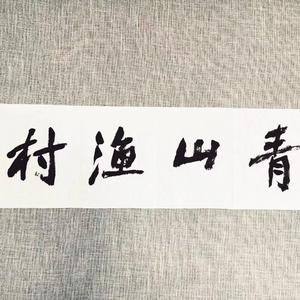 青山渔村